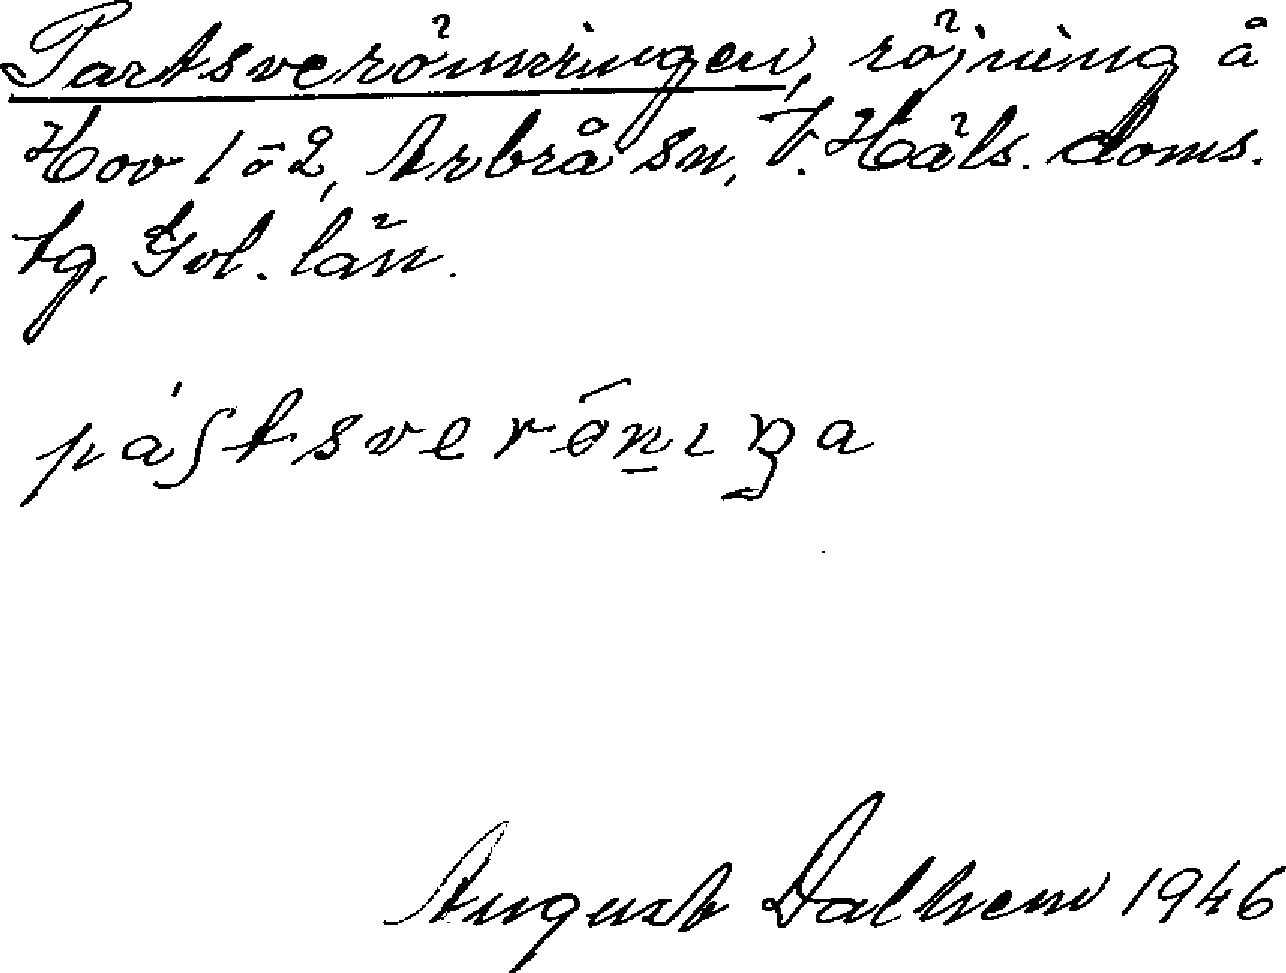 Partsverönningen, röjning å
Hov 1 o 2, Arbrå sn, V. Häls. doms.
tg, Gvl. län.
páʃtsverǿnıŋa
August Dalhem 1946